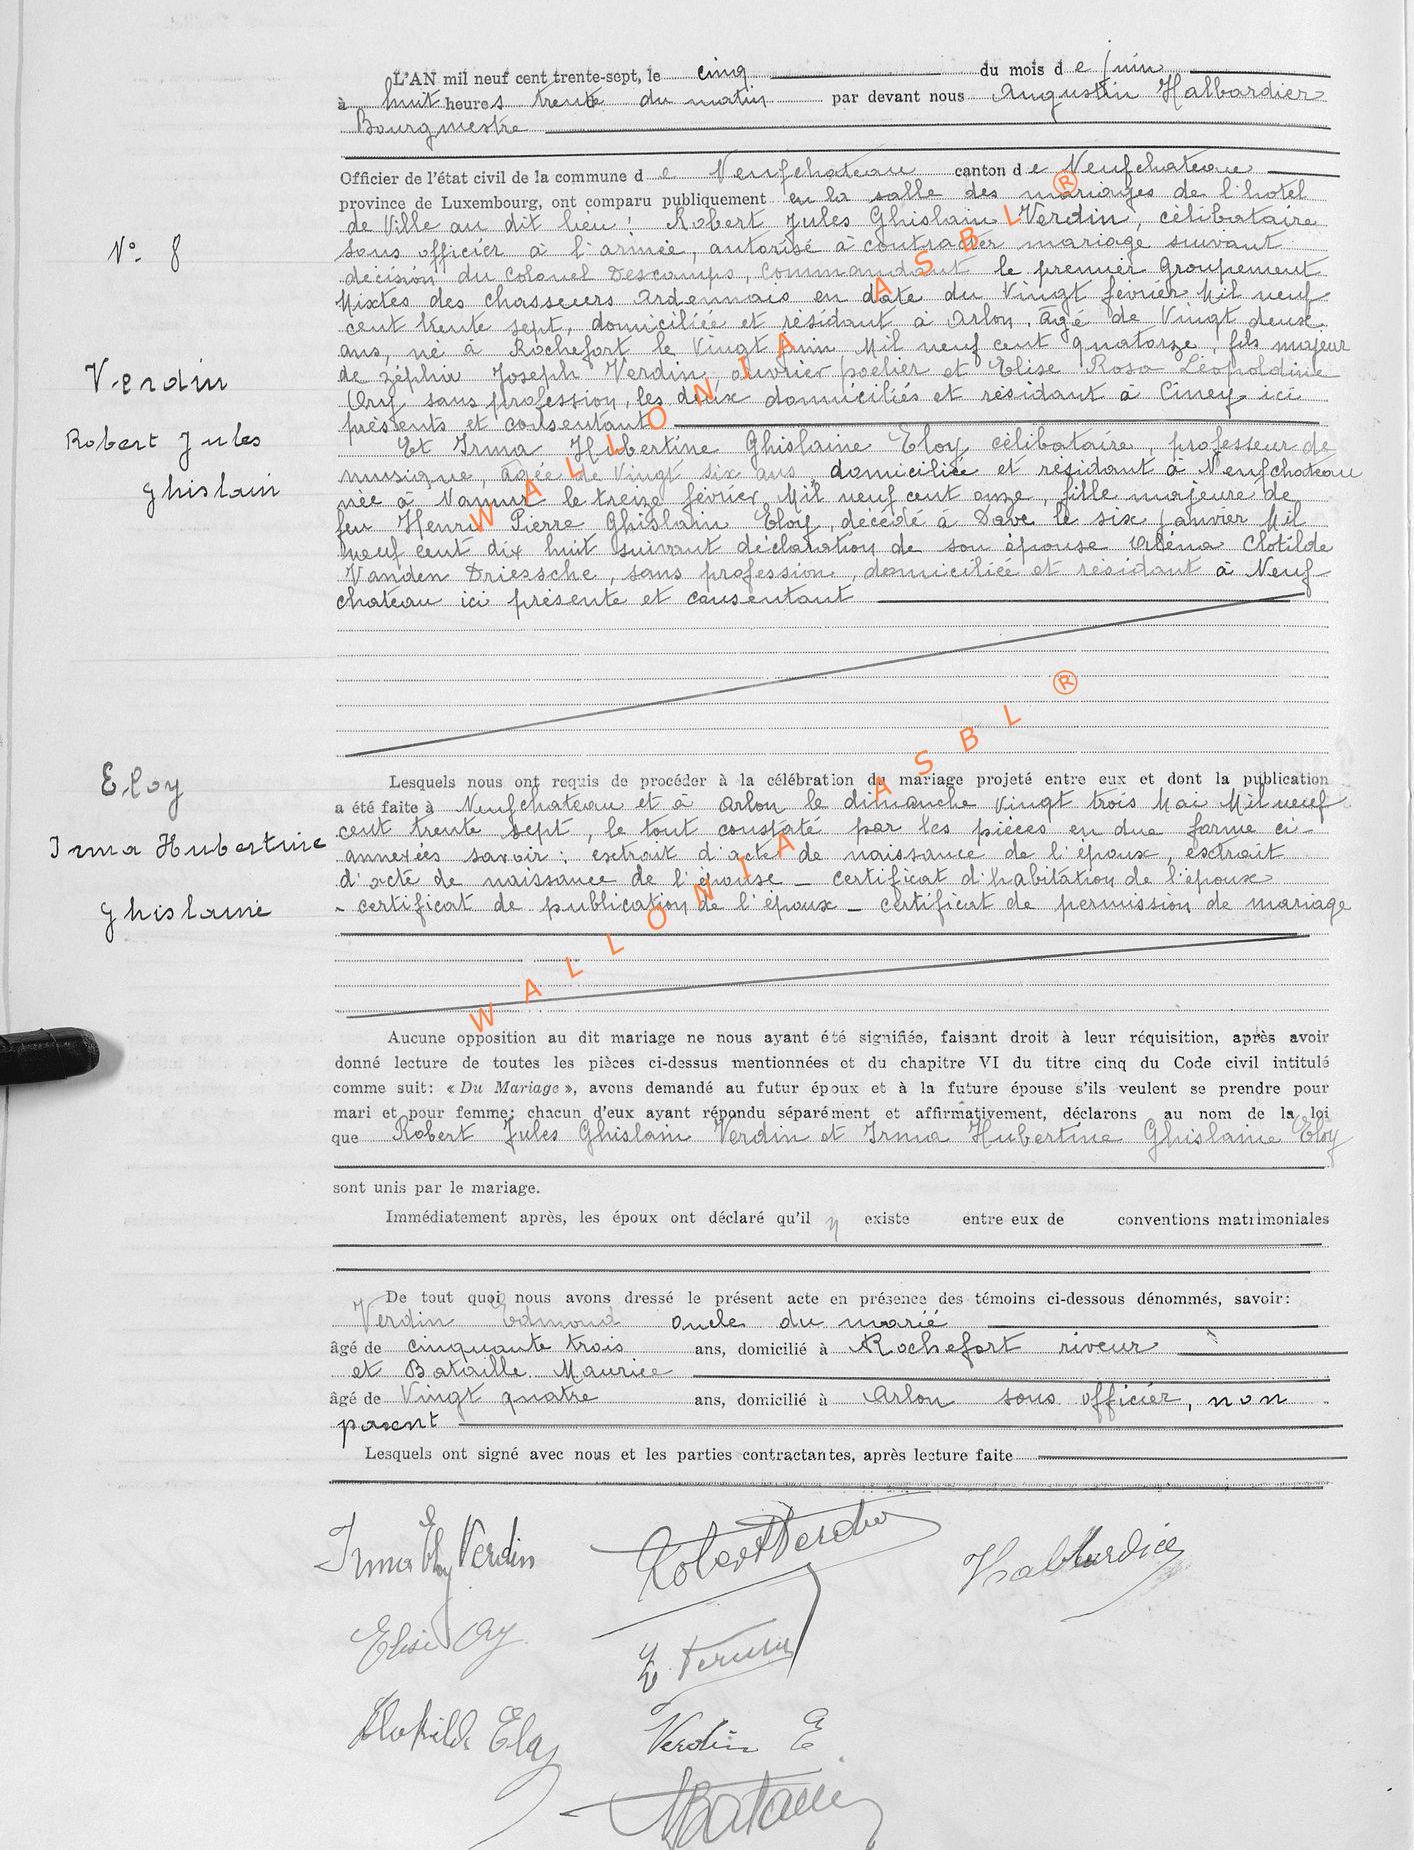 L'AN mil neuf cent trente-sept, le cinq du mois de juin
à huit heures trente du matin par devant nous Augustin Halbardier
Bourgmestre
Officier de l'état civil de la commune de Neufchateau canton de Neufchateau
province de Luxembourg, ont comparu publiquement en la salle des mariages de l'hotel
de Ville au dit lieu : Robert Jules Ghislain Verdin, célibataire
sous officier à l'armée, autorisé à contracter mariage suivant
décision du Colonel Descamps, Commandant le premier Groupement
Mixtes des chasseurs ardennais en date du Vingt février Mil neuf
cent trente sept, domiciliée et résidant à Arlon, âgé de Vingt deux
ans, né à Rochefort le Vingt juin Mil neuf cent quatorze, fils majeur
de Zéphir Joseph Verdin, ouvrier poelier et Elise Rosa Léopoldine
Ory sans profession, les deux domiciliés et résidant à Ciney ici
présents et consentant
Et Irma Hubertine Ghislaine Eloy célibataire, professeur de
musique, âgée de Vingt six ans, domiciliée et résidant à Neufchateau
née à Namur le treize février Mil neuf cent onze, fille majeure de
feu Henri Pierre Ghislain Eloy, décédé à Dave le six janvier Mil
neuf cent dix huit suivant déclaration de son épouse Clotilde
Vanden Driessche, sans profession, domiciliée et résidant à Neuf
chateau ici présente et consentant
N° 8
Verdin
Robert Jules
Ghislain
Eloy
Irma Hubertine
Ghislaine
Lesquels nous ont requis de procéder à la célébration du mariage projeté entre eux et dont la publication
a été faite à Neufchateau et à Arlon le dimanche vingt trois Mai Mil neuf
cent trente sept, le tout constaté par les pièces en due forme ci-
annexées savoir : extrait d'acte de naissance de l'époux, extrait
d'acte de naissance de l'épouse - certificat d'habitation de l'époux
- certificat de publication de l'époux - certificat de permission de mariage
Aucune opposition au dit mariage ne nous ayant été signifiée, faisant droit à leur réquisition, après avoir
donné lecture de toutes les pièces ci-dessus mentionnées et du chapitre VI du titre cinq du Code civil intitulé
comme suit: « Du Mariage », avons demandé au futur époux et à la future épouse s'ils veulent se prendre pour
mari et pour femme; chacun d'eux ayant répondu séparément et affirmativement, déclarons au nom de la loi
que Robert Jules Ghislain Verdin et Irma Hubertine Ghislaine Eloy
sont unis par le mariage.
Immédiatement après, les époux ont déclaré qu'il n existe entre eux de conventions matrimoniales
De tout quoi nous avons dressé le présent acte en présence des témoins ci-dessous dénommés, savoir:
Verdin Edmond oncle du marié
âgé de cinquante trois ans, domicilié à Rochefort riveur
et Bataille Maurice
âgé de Vingt quatre ans, domicilié à Arlon sous officier, non
parent
Lesquels ont signé avec nous et les parties contractantes, après lecture faite
Irma Eloy Verdin Robert Verdin Halbardier
Elise Ory Z. Verdin
Clotilde Eloy Verdin E
MBataille
WALLONIA ASBL ®
WALLONIA ASBL ®